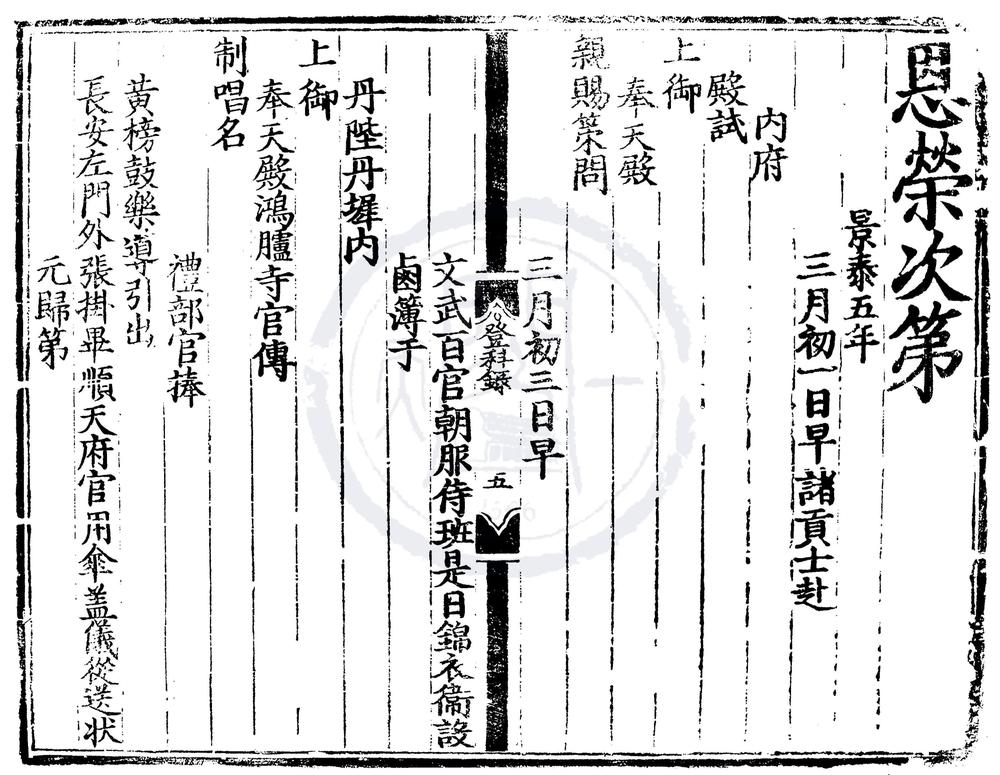 恩榮次第
景泰五年
三月初一日早諸貢士赴
内府
殿試
上御
奉天殿
親賜策問
三月初三日早
登科錄
五
文武百官朝服侍班是日錦衣衞設
鹵簿于
丹陛丹墀内
上御
奉天殿鴻臚寺官傳
制唱名
禮部官捧
黃榜鼓樂導引出
長安左門外張掛畢順天府官用傘盖儀從送状
元歸第